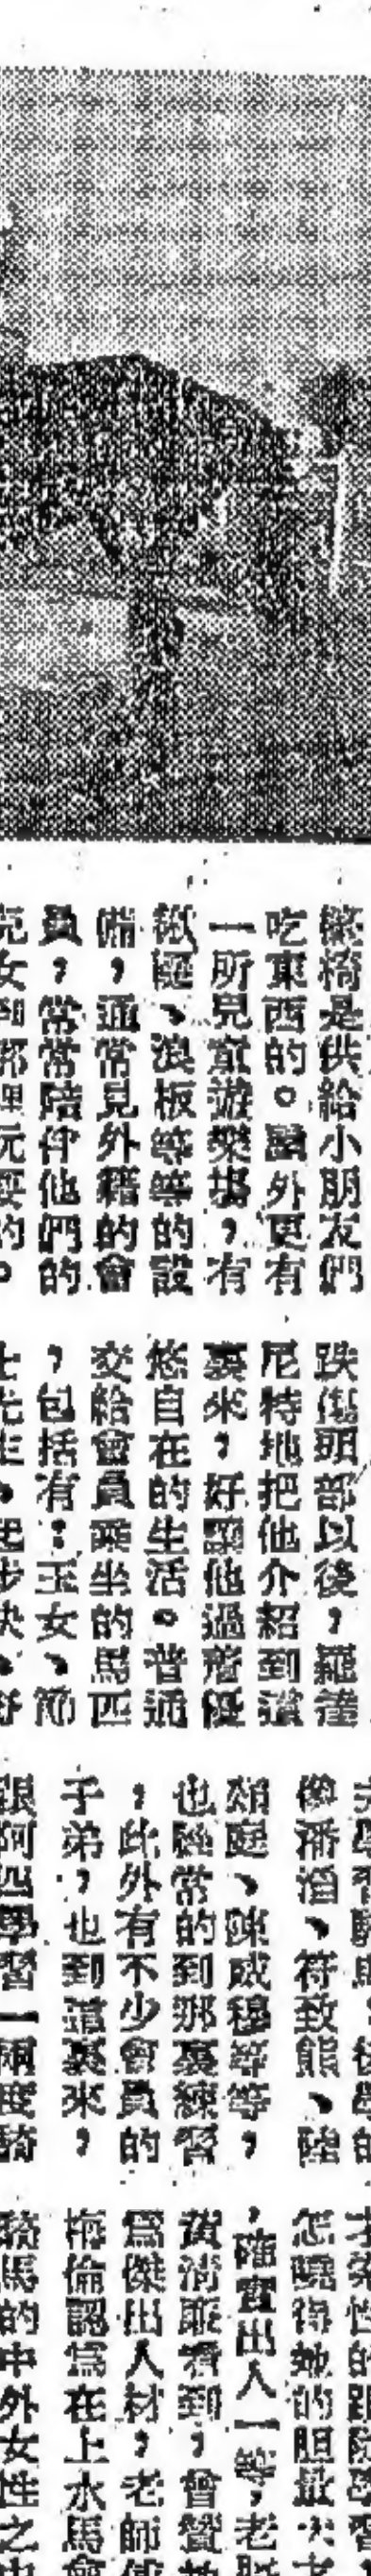 椅是供給小朋友們
吃東西的。另外更有
一所兒童遊樂場,有
鞦韆、浪板等等的設
備,通常見外籍的會
員,常常陪伴他們的
兒女到那裡玩耍的。
跌傷頭部以後,羅
尼特地把他介紹到這
裏來,好讓他過着優
悠自在的生活。普通
交給會員乘坐的馬匹
,包括有:玉女、
士先生、起步快、
像潘滔、符致熊、陸
庭、陳成穆等等,
也經常的到那裏練習
,此外有不少會員的
子弟,也到這裏來,
跟阿四學習一兩度騎
怎曉得她的胆量
,確實出人一等,老
黃清看到,曾贊
爲傑出人材,老師
梅倫認爲在上水馬會
騎馬的中外女性之